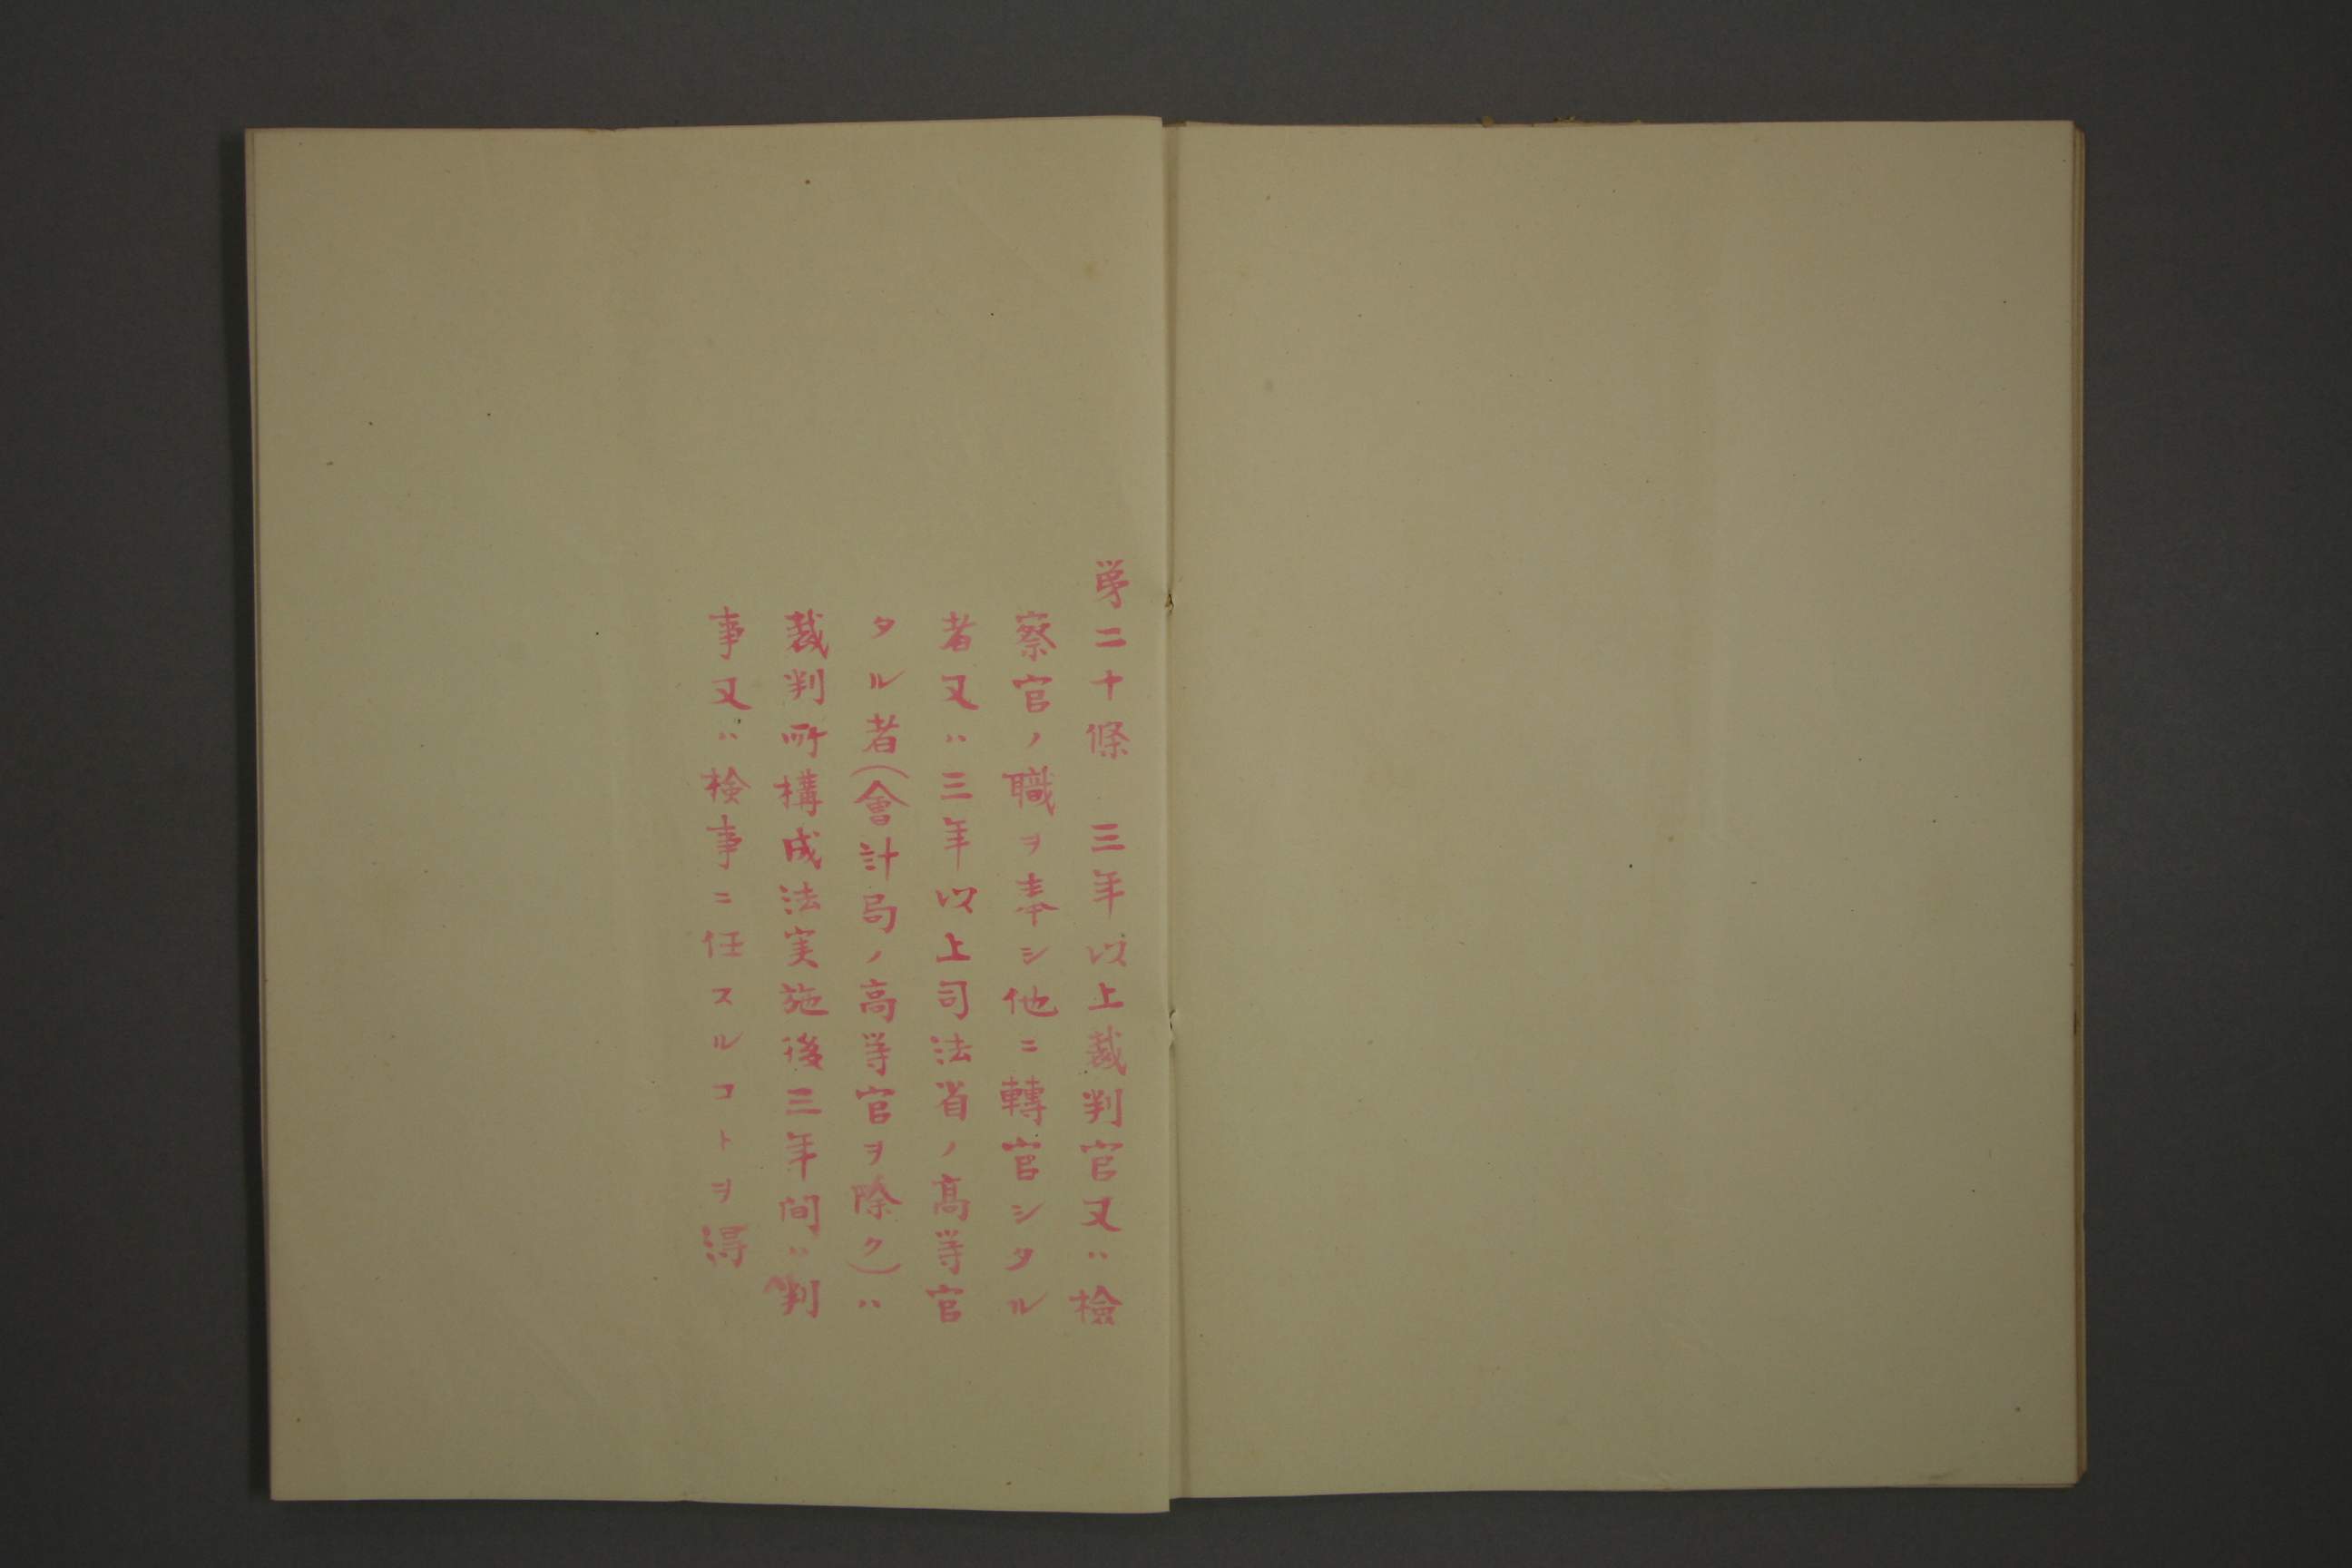 第二十條　三年以上裁判官又ハ檢
察官ノ職ヲ奉シ他ニ轉官シタル
者又ハ三年以上司法省ノ高等官
タル者(會計局ノ高等官ヲ除ク)ハ
裁判所構成法実施後三年間ハ判
事又ハ検事ニ任スルコトヲ得